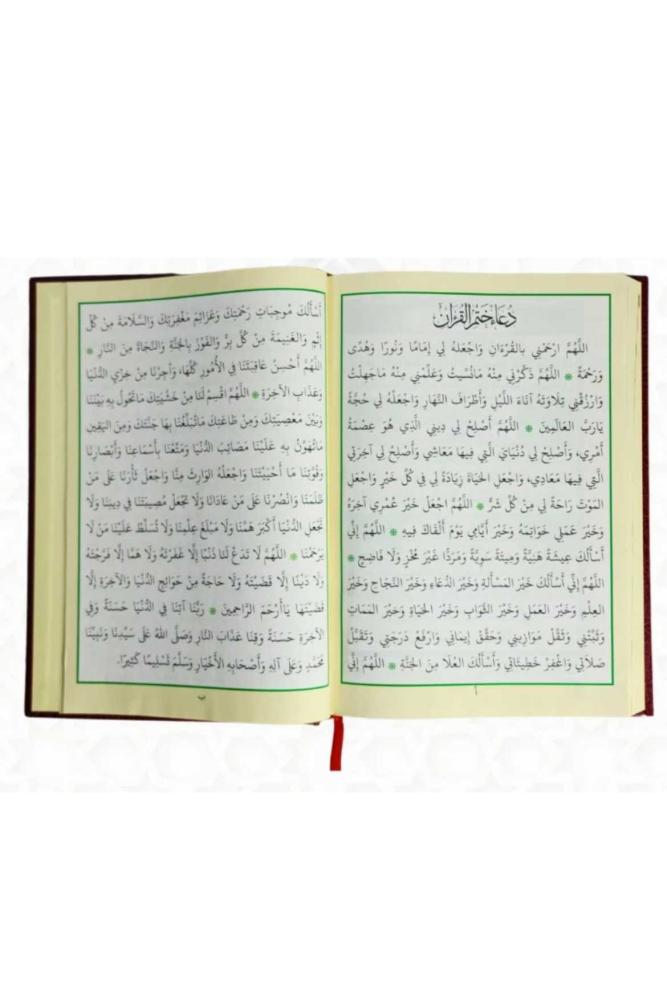 دُعَاءُ خَتْمِ القُرْآنِ
اللَّهُمَّ ارْحَمْنِي بالقُرْءَانِ وَاجْعَلهُ لِي إِمَامًا وَنُورًا وَهُدًى
وَرَحْمَةً * اللَّهُمَّ ذَكِّرْنِي مِنْهُ مَانَسِيتُ وَعَلِّمْنِي مِنْهُ مَاجَهِلْتُ
وَارْزُقْنِي تِلَاوَتَهُ آنَاءَ اللَّيْلِ وَأَطْرَافَ النَّهَارِ وَاجْعَلْهُ لِي حُجَّةً
يَارَبَّ العَالَمِينَ * اللَّهُمَّ أَصْلِحْ لِي دِينِي الَّذِي هُوَ عِصْمَةُ
أَمْرِي، وَأَصْلِحْ لِي دُنْيَايَ الَّتِي فِيهَا مَعَاشِي وَأَصْلِحْ لِي آخِرَتِي
الَّتِي فِيهَا مَعَادِي، وَاجْعَلِ الحَيَاةَ زِيَادَةً لِي فِي كُلِّ خَيْرٍ وَاجْعَلِ
المَوْتَ رَاحَةً لِي مِنْ كُلِّ شَرٍّ * اللَّهُمَّ اجْعَلْ خَيْرَ عُمْرِي آخِرَهُ
وَخَيْرَ عَمَلِي خَوَاتِمَهُ وَخَيْرَ أَيَّامِي يَوْمَ أَلْقَاكَ فِيهِ * اللَّهُمَّ إِنِّي
أَسْأَلُكَ عِيشَةً هَنِيَّةً وَمِيتَةً سَوِيَّةً وَمَرَدًّا غَيْرَ مُخْزٍ وَلَا فَاضِحٍ *
اللَّهُمَّ إِنِّي أَسْأَلُكَ خَيْرَ المَسْأَلَةِ وَخَيْرَ الدُّعَاءِ وَخَيْرَ النَّجَاحِ وَخَيْرَ
العِلْمِ وَخَيْرَ العَمَلِ وَخَيْرَ الثَّوَابِ وَخَيْرَ الحَيَاةِ وَخَيْرَ المَمَاتِ
وَثَبِّتْنِي وَثَقِّلْ مَوَازِينِي وَحَقِّقْ إِيمَانِي وَارْفَعْ دَرَجَتِي وَتَقَبَّلْ
صَلَاتِي وَاغْفِرْ خَطِيئَاتِي وَأَسْأَلُكَ العُلَا مِنَ الجَنَّةِ * اللَّهُمَّ إِنِّي
أ
أَسْأَلُكَ مُوجِبَاتِ رَحْمَتِكَ وَعَزَائِمَ مَغْفِرَتِكَ وَالسَّلَامَةَ مِنْ كُلِّ
إِثْمٍ وَالغَنِيمَةَ مِنْ كُلِّ بِرٍّ وَالفَوْزَ بِالجَنَّةِ وَالنَّجَاةَ مِنَ النَّارِ *
اللَّهُمَّ أَحْسِنْ عَاقِبَتَنَا فِي الأُمُورِ كُلِّهَا، وَأَجِرْنَا مِنْ خِزْيِ الدُّنْيَا
وَعَذَابِ الآخِرَةِ * اللَّهُمَّ اقْسِمْ لَنَا مِنْ خَشْيَتِكَ مَاتَحُولُ بِهِ بَيْنَنَا
وَبَيْنَ مَعْصِيَتِكَ وَمِنْ طَاعَتِكَ مَاتُبَلِّغُنَا بِهَا جَنَّتَكَ وَمِنَ اليَقِينِ
مَاتُهَوِّنُ بِهِ عَلَيْنَا مَصَائِبَ الدُّنْيَا وَمَتِّعْنَا بِأَسْمَاعِنَا وَأَبْصَارِنَا
وَقُوَّتِنَا مَا أَحْيَيْتَنَا وَاجْعَلْهُ الوَارِثَ مِنَّا وَاجْعَلْ ثَأْرَنَا عَلَى مَنْ
ظَلَمَنَا وَانْصُرْنَا عَلَى مَنْ عَادَانَا وَلَا تَجْعَلْ مُصِيبَتَنَا فِي دِينِنَا وَلَا
تَجْعَلِ الدُّنْيَا أَكْبَرَ هَمِّنَا وَلَا مَبْلَغَ عِلْمِنَا وَلَا تُسَلِّطْ عَلَيْنَا مَنْ لَا
يَرْحَمُنَا * اللَّهُمَّ لَا تَدَعْ لَنَا ذَنْبًا إِلَّا غَفَرْتَهُ وَلَا هَمًّا إِلَّا فَرَّجْتَهُ
وَلَا دَيْنًا إِلَّا قَضَيْتَهُ وَلَا حَاجَةً مِنْ حَوَائِجِ الدُّنْيَا وَالآخِرَةِ إِلَّا
قَضَيْتَهَا يَاأَرْحَمَ الرَّاحِمِينَ * رَبَّنَا آتِنَا فِي الدُّنْيَا حَسَنَةً وَفِي
الآخِرَةِ حَسَنَةً وَقِنَا عَذَابَ النَّارِ وَصَلَّى اللهُ عَلَى سَيِّدِنَا وَنَبِيِّنَا
مُحَمَّدٍ وَعَلَى آلِهِ وَأَصْحَابِهِ الأَخْيَارِ وَسَلَّمَ تَسْلِيمًا كَثِيرًا.
ب